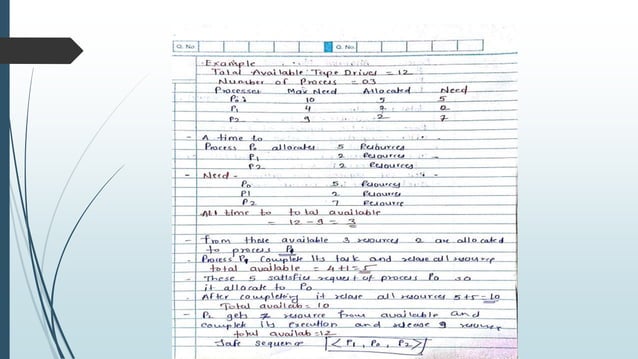 Q. No. Q. No.
Example
Total Available Tape Drives = 12
Number of Process = 03
Processes Max Need Allocated Need
P0: 10 5 5
P1 4 2 2
P2 9 2 7
- A time to
Process P0 allocates 5 Resources
P1 2 Resources
P2 2 Resources
- Need -
P0 5 Resources
P1 2 Resource
P2 7 Resource
All time to total available
= 12 - 9 = 3
- From these available 3 resources 2 are allocated
to process P1
- Process P1 Complete Its task and relase all resource
total available = 4+1=5
- These 5 satisfies request of process P0 so
it allocate to P0
- After completing it relase all resources 5+5=10
Total availab= 10
- P2 gets 7 resource from available and
complet its Execution and release 9 resource
total availab=12
Safe sequence < P1, P0, P2 >